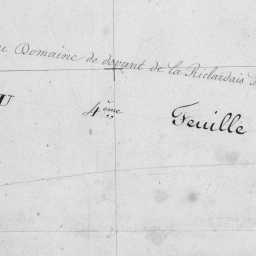 Domaine de devant de la Richardais
4ème Feuille